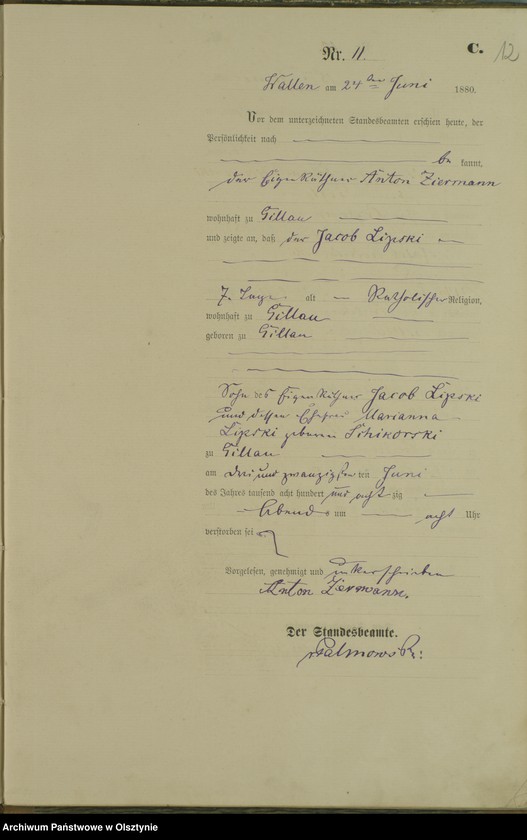 C. 12
Nr. 11.
Wallen am 24ten Juni 1880.
Vor dem unterzeichneten Standesbeamten erschien heute, der
Persönlichkeit nach
be kannt,
der Eigenkäthner Anton Ziermann
wohnhaft zu Gillau
und zeigte an, daß der Jacob Lipski
7. Tage alt Katholischer Religion,
wohnhaft zu Gillau
geboren zu Gillau
Sohn des Eigenkäthner Jacob Lipski
und dessen Ehefrau Marianna
Lipski geborne Schikorski
zu Gillau
am drei und zwanzigsten ten Juni
des Jahres tausend acht hundert und acht zig
Abends um acht Uhr
verstorben sei
Vorgelesen, genehmigt und unterschrieben
Anton Ziermann.
Der Standesbeamte.
Archiwum Państwowe w Olsztynie